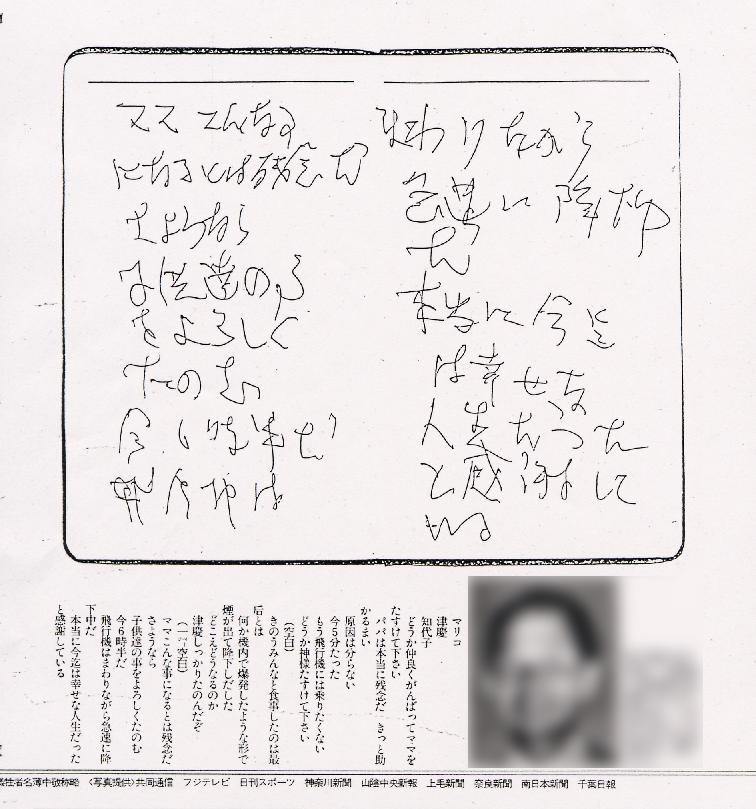 ママ こんな事
になるとは残念だ
さようなら
子供達の事
をよろしく
たのむ
今6時半だ
飛行機は
まわりながら
急速に降下中
だ
本当に今迄
は幸せな
人生だった
と感謝して
いる
マリコ
津慶
知代子
どうか仲良くがんばってママを
たすけて下さい
パパは本当に残念だ きっと助
かるまい
原因は分らない
今5分たった
もう飛行機には乗りたくない
どうか神様たすけて下さい
(空白)
きのうみんなと食事したのは最
后とは
何か機内で爆発したような形で
煙が出て降下しだした
どこえどうなるのか
津慶しっかりたのんだぞ
(一字空白)
ママこんな事になるとは残念だ
さようなら
子供達の事をよろしくたのむ
今6時半だ
飛行機はまわりながら急速に降
下中だ
本当に今迄は幸せな人生だった
と感謝している
犠牲者名簿中敬称略 〈写真提供〉共同通信 フジテレビ 日刊スポーツ 神奈川新聞 山陰中央新報 上毛新聞 奈良新聞 南日本新聞 千葉日報